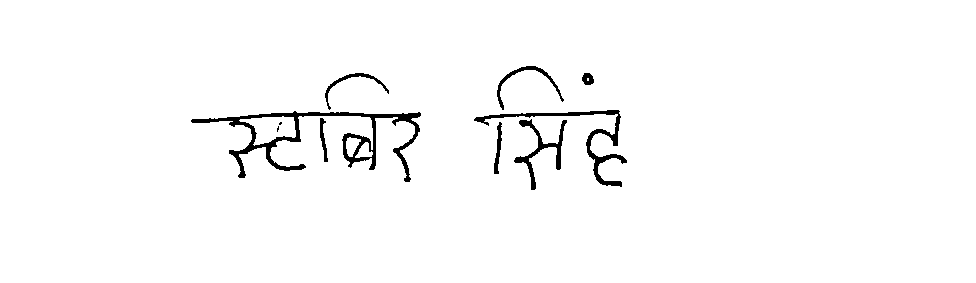 स्टबिर सिंह